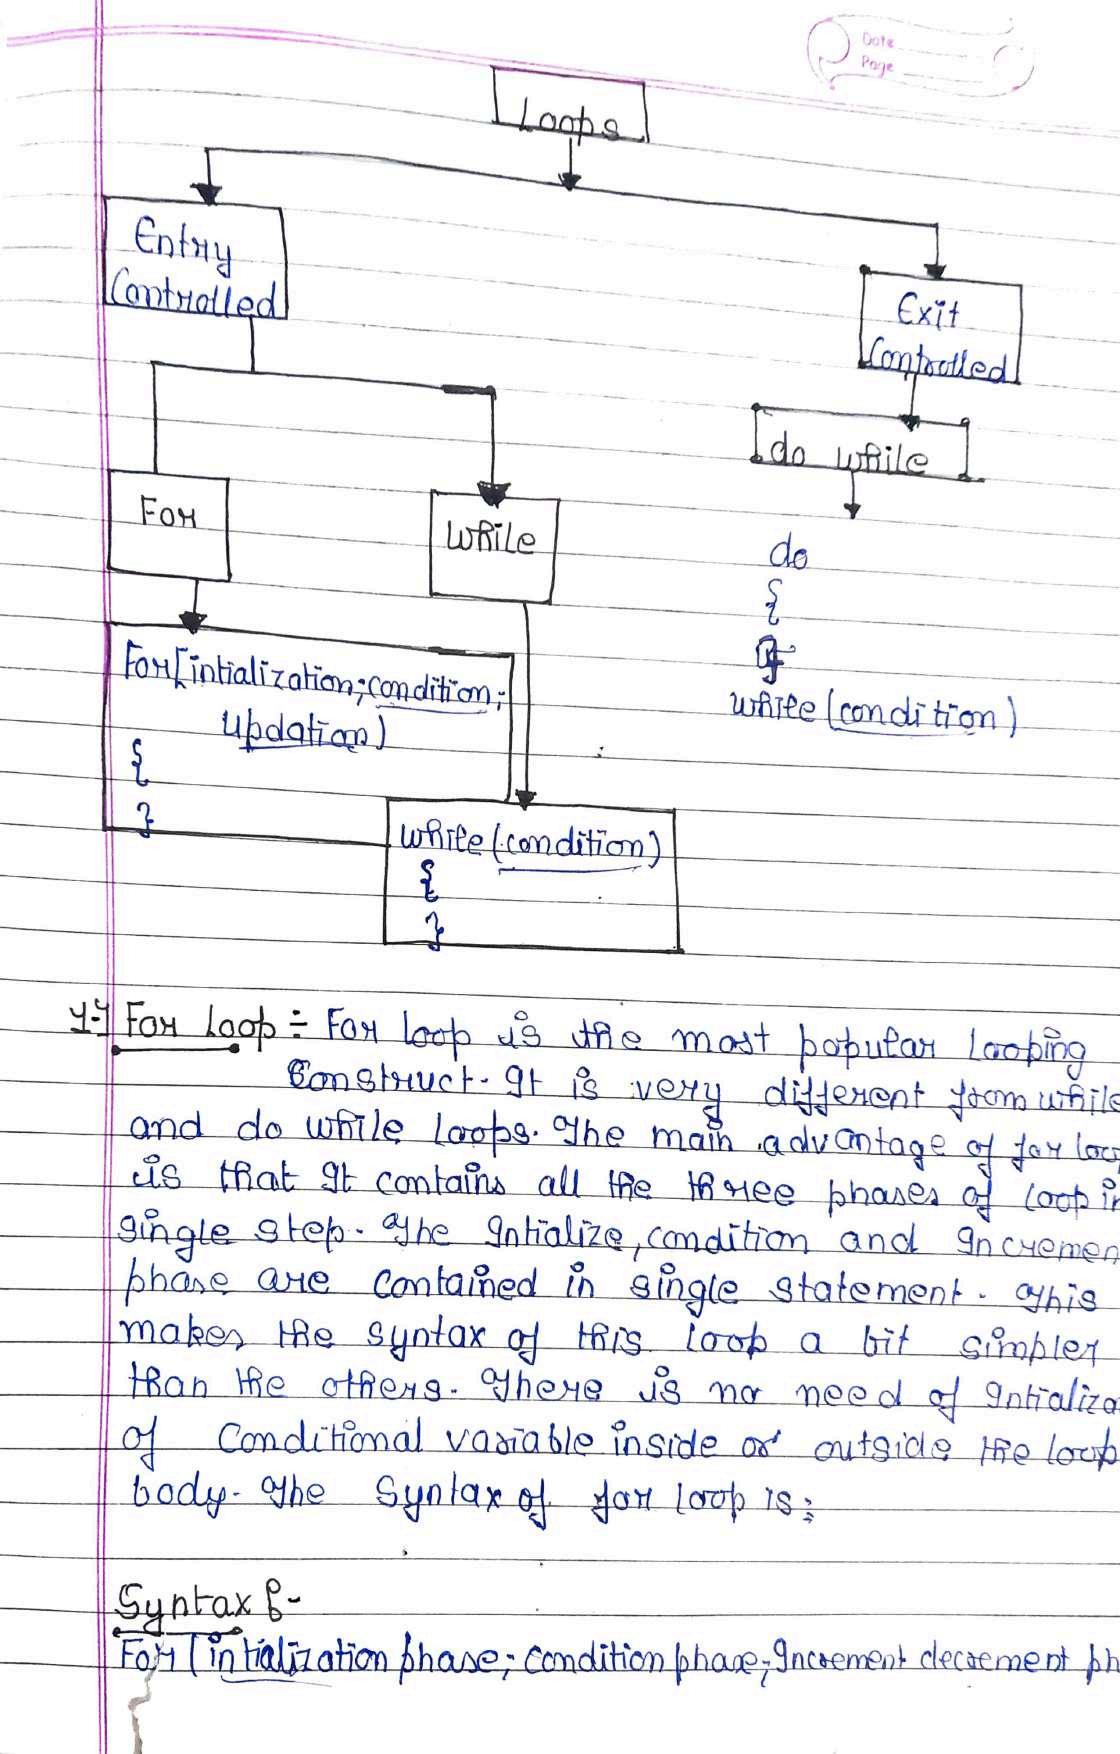 Date
Page
Loops
Entry
Controlled
Exit
Controlled
do while
For
While
do
{
}
while (condition)
For(intialization; condition;
updation)
{
}
while (condition)
{
}
1:- For Loop :- For loop is the most popular looping
Construct. It is very different from while
and do while loops. The main advantage of for loo
is that It contains all the three phases of loop in
single step. The Intialize, condition and Incremen
phase are contained in single statement. This
makes the syntax of this loop a bit simpler
than the others. There is no need of Intializa
of Conditional variable inside or outside the loop
body. The Syntax of for loop is:
Syntax :-
For (intialization phase; condition phase; Increment decrement ph